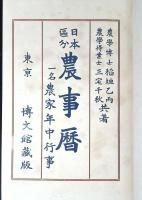 農學博士 稻垣乙丙
農學得業士 三宅千秋 共著
日本區分 農事曆
一名 農家年中行事
東京 博文館藏版